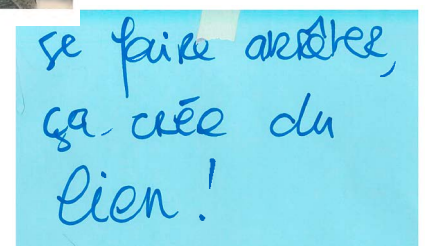 se faire arrêter,
ça crée du
lien !